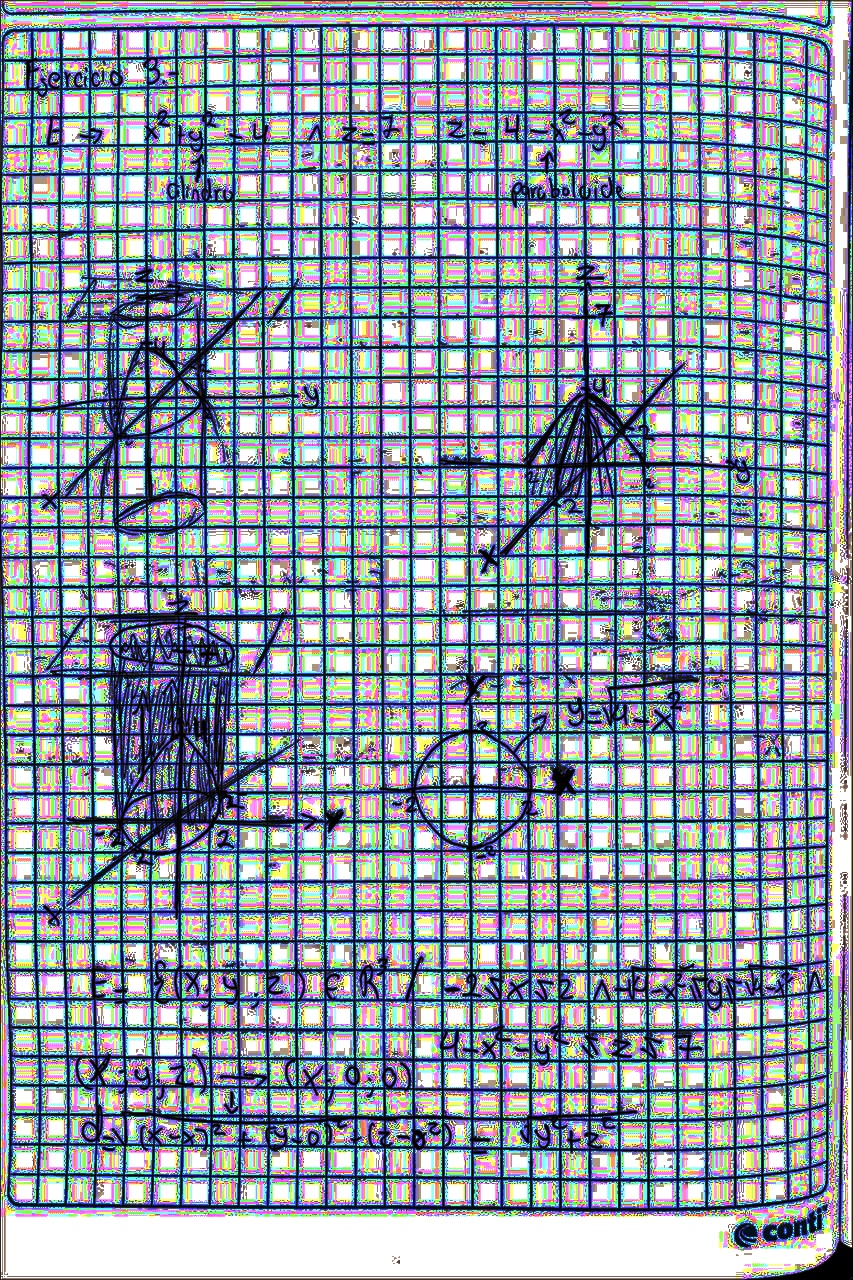 Ejercicio 3.-
E → x² + y² = 4 ∧ z = 7 z = 4 - x² - y²
↑ ↑
cilindro paraboloide
z z
7
4 4
y -2
y
2
2
x x
z
y
y = √4 - x²
4
2
-2 2
-2 2 x
2 y
-2
x
E = {(x, y, z) ∈ R³ / -2 ≤ x ≤ 2 ∧ -√4-x² ≤ y ≤ √4-x² ∧
4 - x² - y² ≤ z ≤ 7
(x, y, z) → (x, 0, 0)
↓
d = √(x-x)² + (y-0)² + (z-0²) = √y² + z²
conti